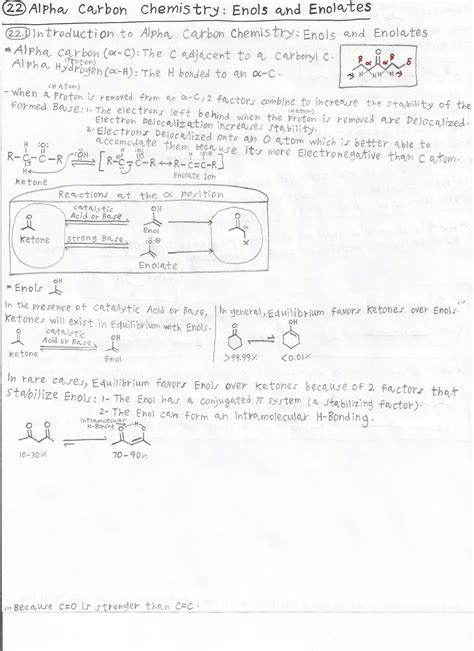 22 Alpha Carbon Chemistry: Enols and Enolates
22.1 Introduction to Alpha Carbon Chemistry: Enols and Enolates
* Alpha carbon (α-C): The C adjacent to a carbonyl C.
(Proton)
Alpha Hydrogen (α-H): The H bonded to an α-C.
β α O α β δ
H H H H
(H atom)
- when a Proton is removed from an α-C, 2 factors combine to increase the stability of the
formed Base: 1- The electrons left behind when the Proton is removed are Delocalized.
(H atom)
Electron Delocalization increases stability.
2- Electrons Delocalized onto an O atom which is better able to
accomodate them because it's more Electronegative than C atom.
H :O: H :O: H :O:
R-C-C-R :OH [R-C-C-R ↔ R-C=C-R]
H
ketone
Enolate Ion
Reactions at the α position
O
Ketone
catalytic
Acid or Base
OH
Enol
strong Base
:O:
Enolate
O
α
X
* Enols OH
In the presence of catalytic Acid or Base,
Ketones will exist in Equilibrium with Enols.
O
ketone
catalytic
Acid or Base
OH
Enol
In general, Equilibrium favors Ketones over Enols.
O OH
>99.99% <0.01%
In rare cases, Equilibrium favors Enols over ketones because of 2 factors that
stabilize Enols: 1- The Enol has a conjugated π system (a stabilizing factor).
2- The Enol can form an Intramolecular H-Bonding.
O O
Intramolecular
H-Bonding
O H O
10-30% 70-90%
Because C=O is stronger than C=C.